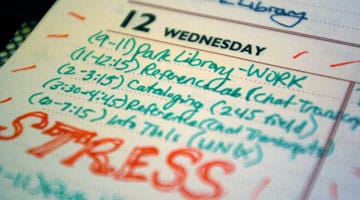 Library
12 WEDNESDAY
(9-11) Park Library - WORK
(11-12:15) Reference Lab (Chat Transcripts
(2-3:15) Cataloging (245 field)
(3:30-4:45) Reference (Chat Transcripts)
(6-7:15) Info This (UNW)
STRESS
Park